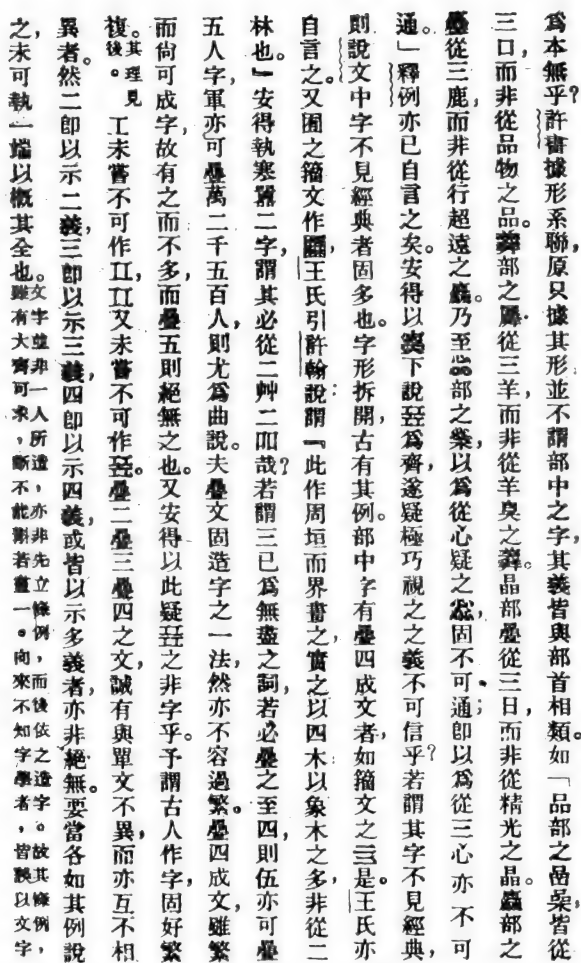 爲本無乎?許書據形系聯,原只據其形,並不謂部中之字,其義皆與部首相類。如「品部之嵒喿,皆從
三口,而非從品物之品。羴部之羼,從三羊,而非從羊臭之羴。晶部疊,從三日,而非從精光之晶。麤部之
麤從三鹿,而非從行超遠之麤。乃至惢部之繠,以爲從心疑之惢,固不可通;即以爲從三心,亦不可
通。」釋例亦已自言之矣。安得以下說㠭爲齊,遂疑極巧視之之義不可信乎?若謂其字不見經典,
則說文中字不見經典者固多也。字形拆開,古有其例。部中字有疊四成文者,如籀文之亖是。王氏亦
自言之。又囿之籀文作𡈹,王氏引許翰說:謂『此作周垣而界畫之,實之以四木以象木之多,非從二
林也。』安得執塞㗊二字,謂其必從二艸二吅哉?若謂三已爲無盡之詞,若必疊之至四,則伍亦可疊
五人字,軍亦可疊萬二千五百人,則尤爲曲說。夫疊文固造字之一法,然亦不容過繁。疊四成文,雖繁
而尙可成字,故有之而不多,而疊五則絕無之也。又安得以此疑㠭之非字乎。予謂古人作字,固好繁
複。其理見後。工未嘗不可作㠭,又未嘗不可作㠭。疊二疊三疊四之文,誠有與單文不異,而亦互不相
異者。然二即以示二義,三即以示三義,四即以示四義,或皆以示多義者,亦非絕無。要當各如其例說
之,未可執一端以概其全也。文字並非一人所造,亦非先立條例,而後依之造字。故其條例,
雖有大齊可求,斷不能劃若畫一。向來不知字學者,皆誤以文字,